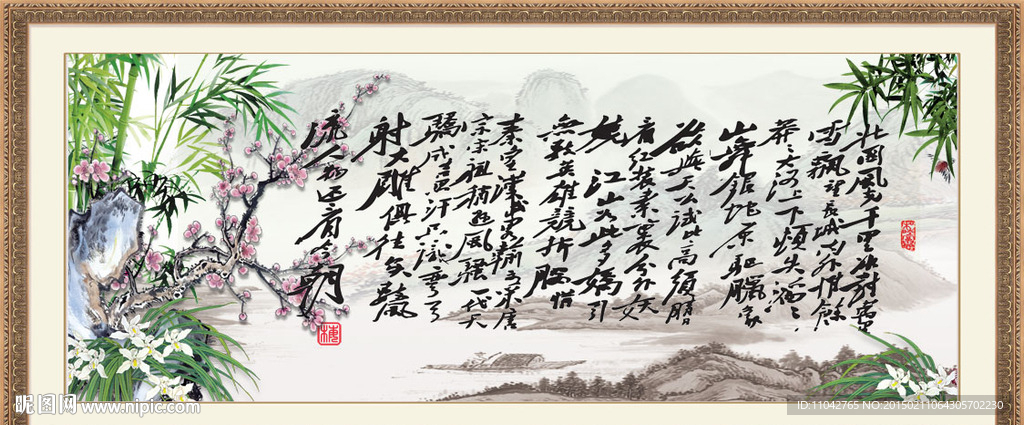 北國風光千里冰封萬里
雪飄望長城內外惟餘
莽莽大河上下頓失滔滔
山舞銀蛇原馳臘象
欲與天公試比高須晴日
看紅裝素裹分外妖
嬈江山如此多嬌引
無數英雄競折腰惜
秦皇漢武略輸文采唐
宗宋祖稍遜風騷一代天
驕成吉思汗只識彎弓
射大雕俱往矣數風
流人物還看今朝
昵图网 www.nipic.com
ID:11042765 NO:20150211064305702230